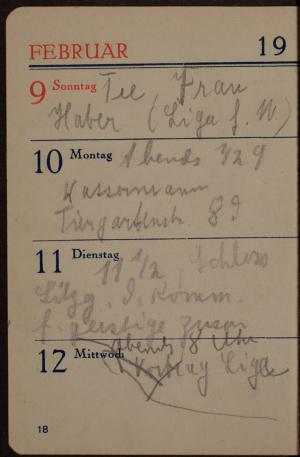 FEBRUAR 19
9 Sonntag Tee, Frau
Haber (Liga f. M)
10 Montag Abends 1/2 9
Wassermann
Tiergartenstr. 8?
11 Dienstag 11 1/2, Schloss
I. Komm.
f. geistige Zusam
12 Mittwoch Abends 8 Uhr
Vortrag Liga
18